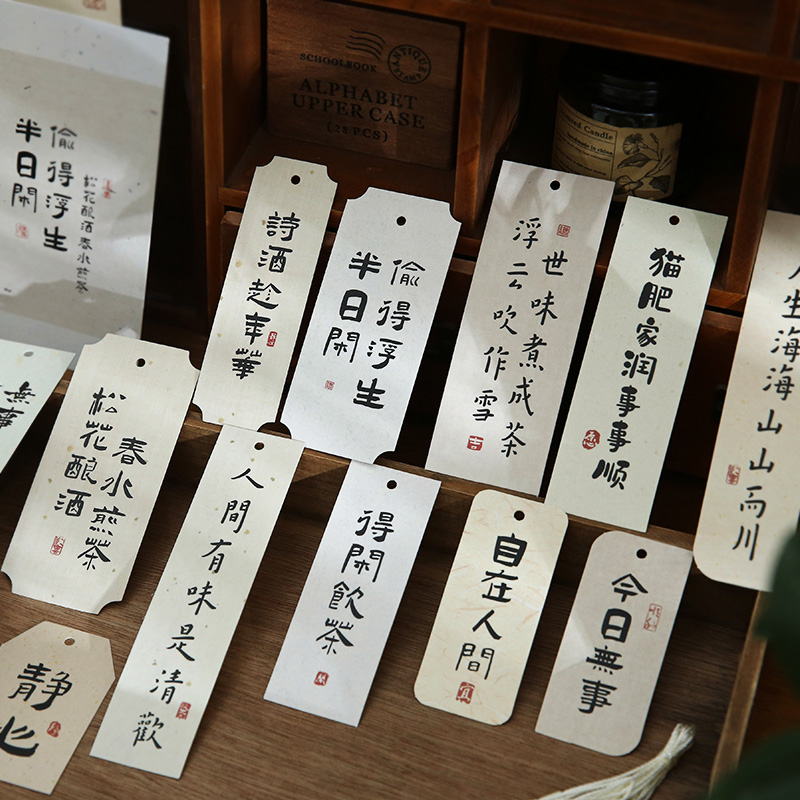 SCHOOLBOOK
ANTIQUE
ALPHABET
UPPER CASE
(28 PCS)
Scented Candle
偷得浮生
半日閑
松花酿酒春水煎茶
詩酒趁年華
偷得浮生
半日閑
世味煮成茶
浮云吹作雪
猫肥家润事事顺
人生海海山山而川
無事
春水煎茶
松花酿酒
人間有味是清歡
得閑飲茶
自在人間
宜
今日無事
静心